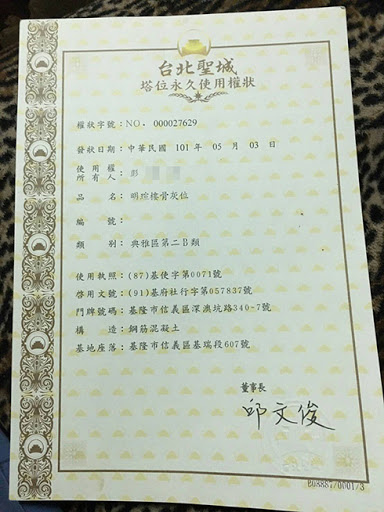 台北聖城
塔位永久使用權狀
權狀字號：NO. 000027629
發狀日期：中華民國 101 年 05 月 03 日
使用權
所有人：彭
品名：明琮樓骨灰位
編號：
類別：典雅區第二B類
使用執照：(87)基使字第0071號
啓用文號：(91)基府社行字第057837號
門牌號碼：基隆市信義區深澳坑路340-7號
構造：鋼筋混凝土
基地座落：基隆市信義區基瑞段607號
董事長
邱文俊